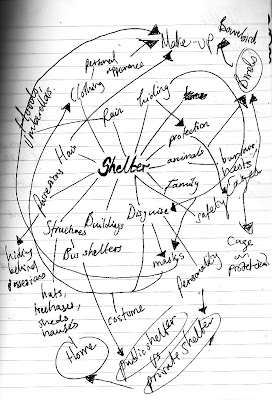 Bowerbird
Make-up
Birds
personal
appearance
Hoods,
Umbrellas.
Clothing
Rain
Hiding
Hair
protection
Shelter
animals
Family
nests
safety
Possessions
Structures
Buildings
Disguise
Bus shelters
masks
Personality
hiding
behind
possessions
Cage
protection
huts,
treehouses,
sheds
houses
costume
Home
public shelter
vs
private shelter